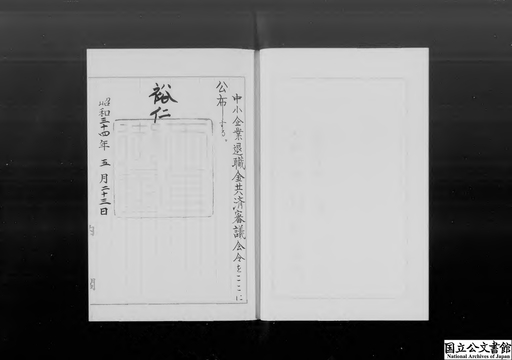 中小企業退職金共済審議会令をここに
公布する。
裕仁
昭和三十四年五月二十三日
国立公文書館
National Archives of Japan